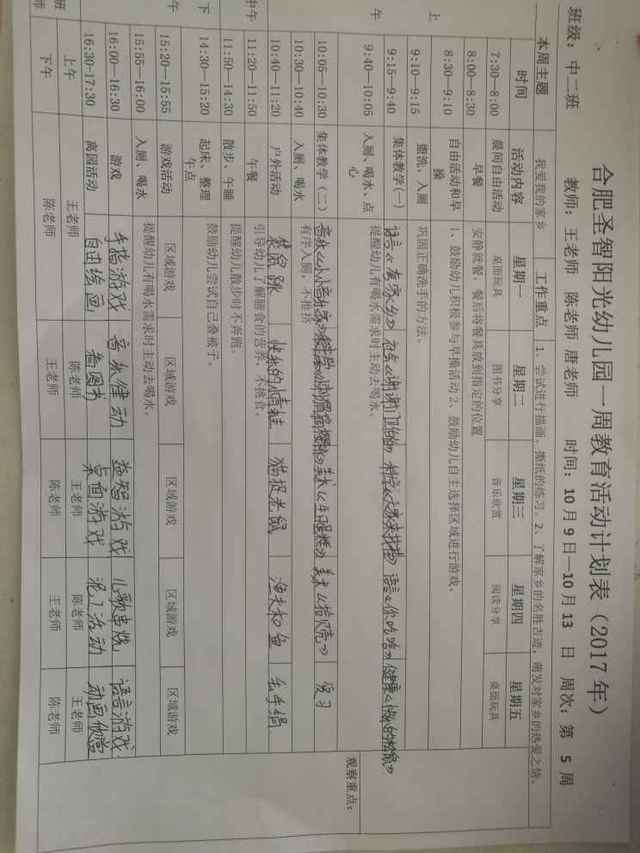 合肥圣智阳光幼儿园一周教育活动计划表（2017年）
班级：中二班 教师：王老师 陈老师 唐老师 时间：10月9日—10月13 日 周次：第 5 周
本周主题 我爱我的家乡 工作重点 1、尝试进行描画、撕纸的练习。2、了解家乡的名胜古迹，萌发对家乡的热爱之情。
时间 活动内容 星期一 星期二 星期三 星期四 星期五
上午
7:30—8:00 晨间自由活动 桌面玩具 图书分享 音乐欣赏 阅读分享 桌面玩具
8:00—8:30 早餐 安静就餐，餐后将餐具放到指定的位置
8:30—9:10 自由活动和早操 1、鼓励幼儿积极参与早操活动2、鼓励幼儿自主选择区域进行游戏。
9:10—9:15 盥洗、入厕 巩固正确洗手的方法。
9:15—9:40 集体教学(一) 语言 社会 科学 语言《你吃啥》 健康
9:40—10:05 入厕、喝水、点心 提醒幼儿有喝水需求时主动去喝水。
10:05—10:30 集体教学（二） 音乐 美术 美术 复习
10:30—10:40 入厕、喝水 有序入厕，不推挤
10:40—11:20 户外活动 袋鼠跳 快乐的小青蛙 猫捉老鼠 渔夫和鱼 丢手绢
中午
11:20—11:50 午餐 引导幼儿了解膳食的营养，不挑食。
11:50—14:30 散步、午睡 提醒幼儿散步时不奔跑。
下午
14:30—15:20 起床、整理 午点 鼓励幼儿尝试自己叠被子。
15:20—15:55 游戏活动 区域游戏 区域游戏 区域游戏 区域游戏 区域游戏
15:55—16:00 入厕、喝水 提醒幼儿有喝水需求时主动去喝水。
16:00—16:30 游戏 手指游戏 音乐律动 益智游戏 儿歌串烧 语言游戏
16:30-17:30 离园活动 自由绘画 看图书 桌面游戏 泥工活动 动画欣赏
班 上午 王老师 陈老师 王老师 陈老师 王老师
师 下午 陈老师 王老师 陈老师 王老师 陈老师
观察重点：